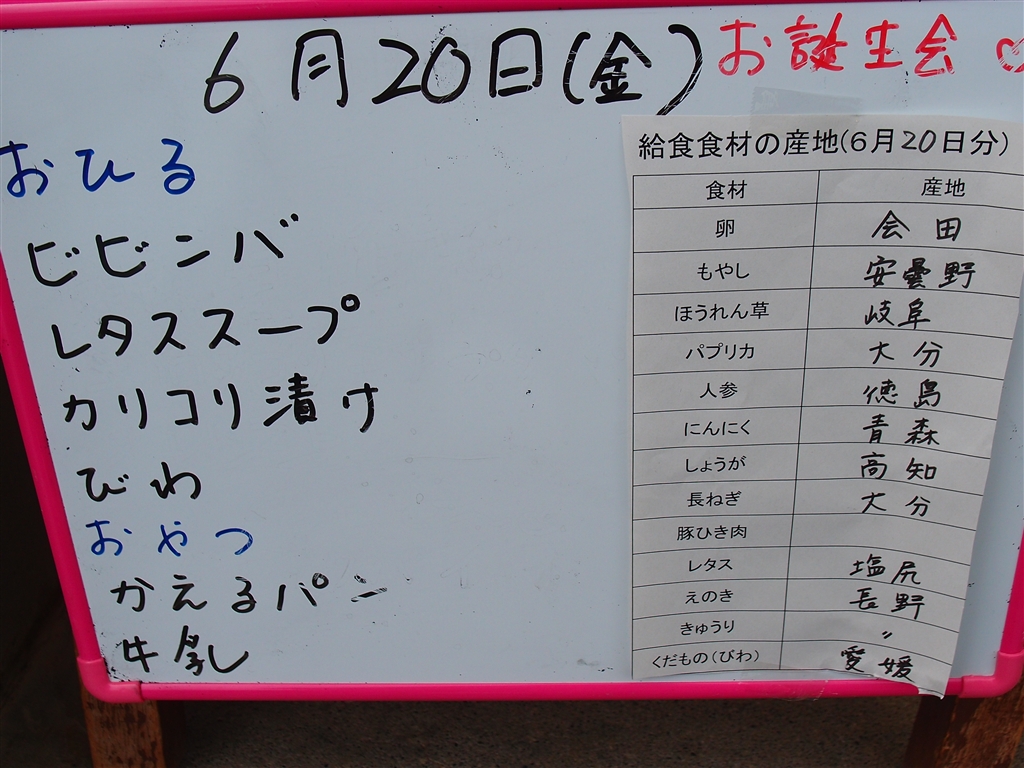 6月20日(金)お誕生会♡
おひる
ビビンバ
レタススープ
カリコリ漬け
びわ
おやつ
かえるパン
牛乳
給食食材の産地(6月20日分)
食材 産地
卵 会田
もやし 安曇野
ほうれん草 岐阜
パプリカ 大分
人参 徳島
にんにく 青森
しょうが 高知
長ねぎ 大分
豚ひき肉
レタス 塩尻
えのき 長野
きゅうり 〃
くだもの(びわ) 愛媛